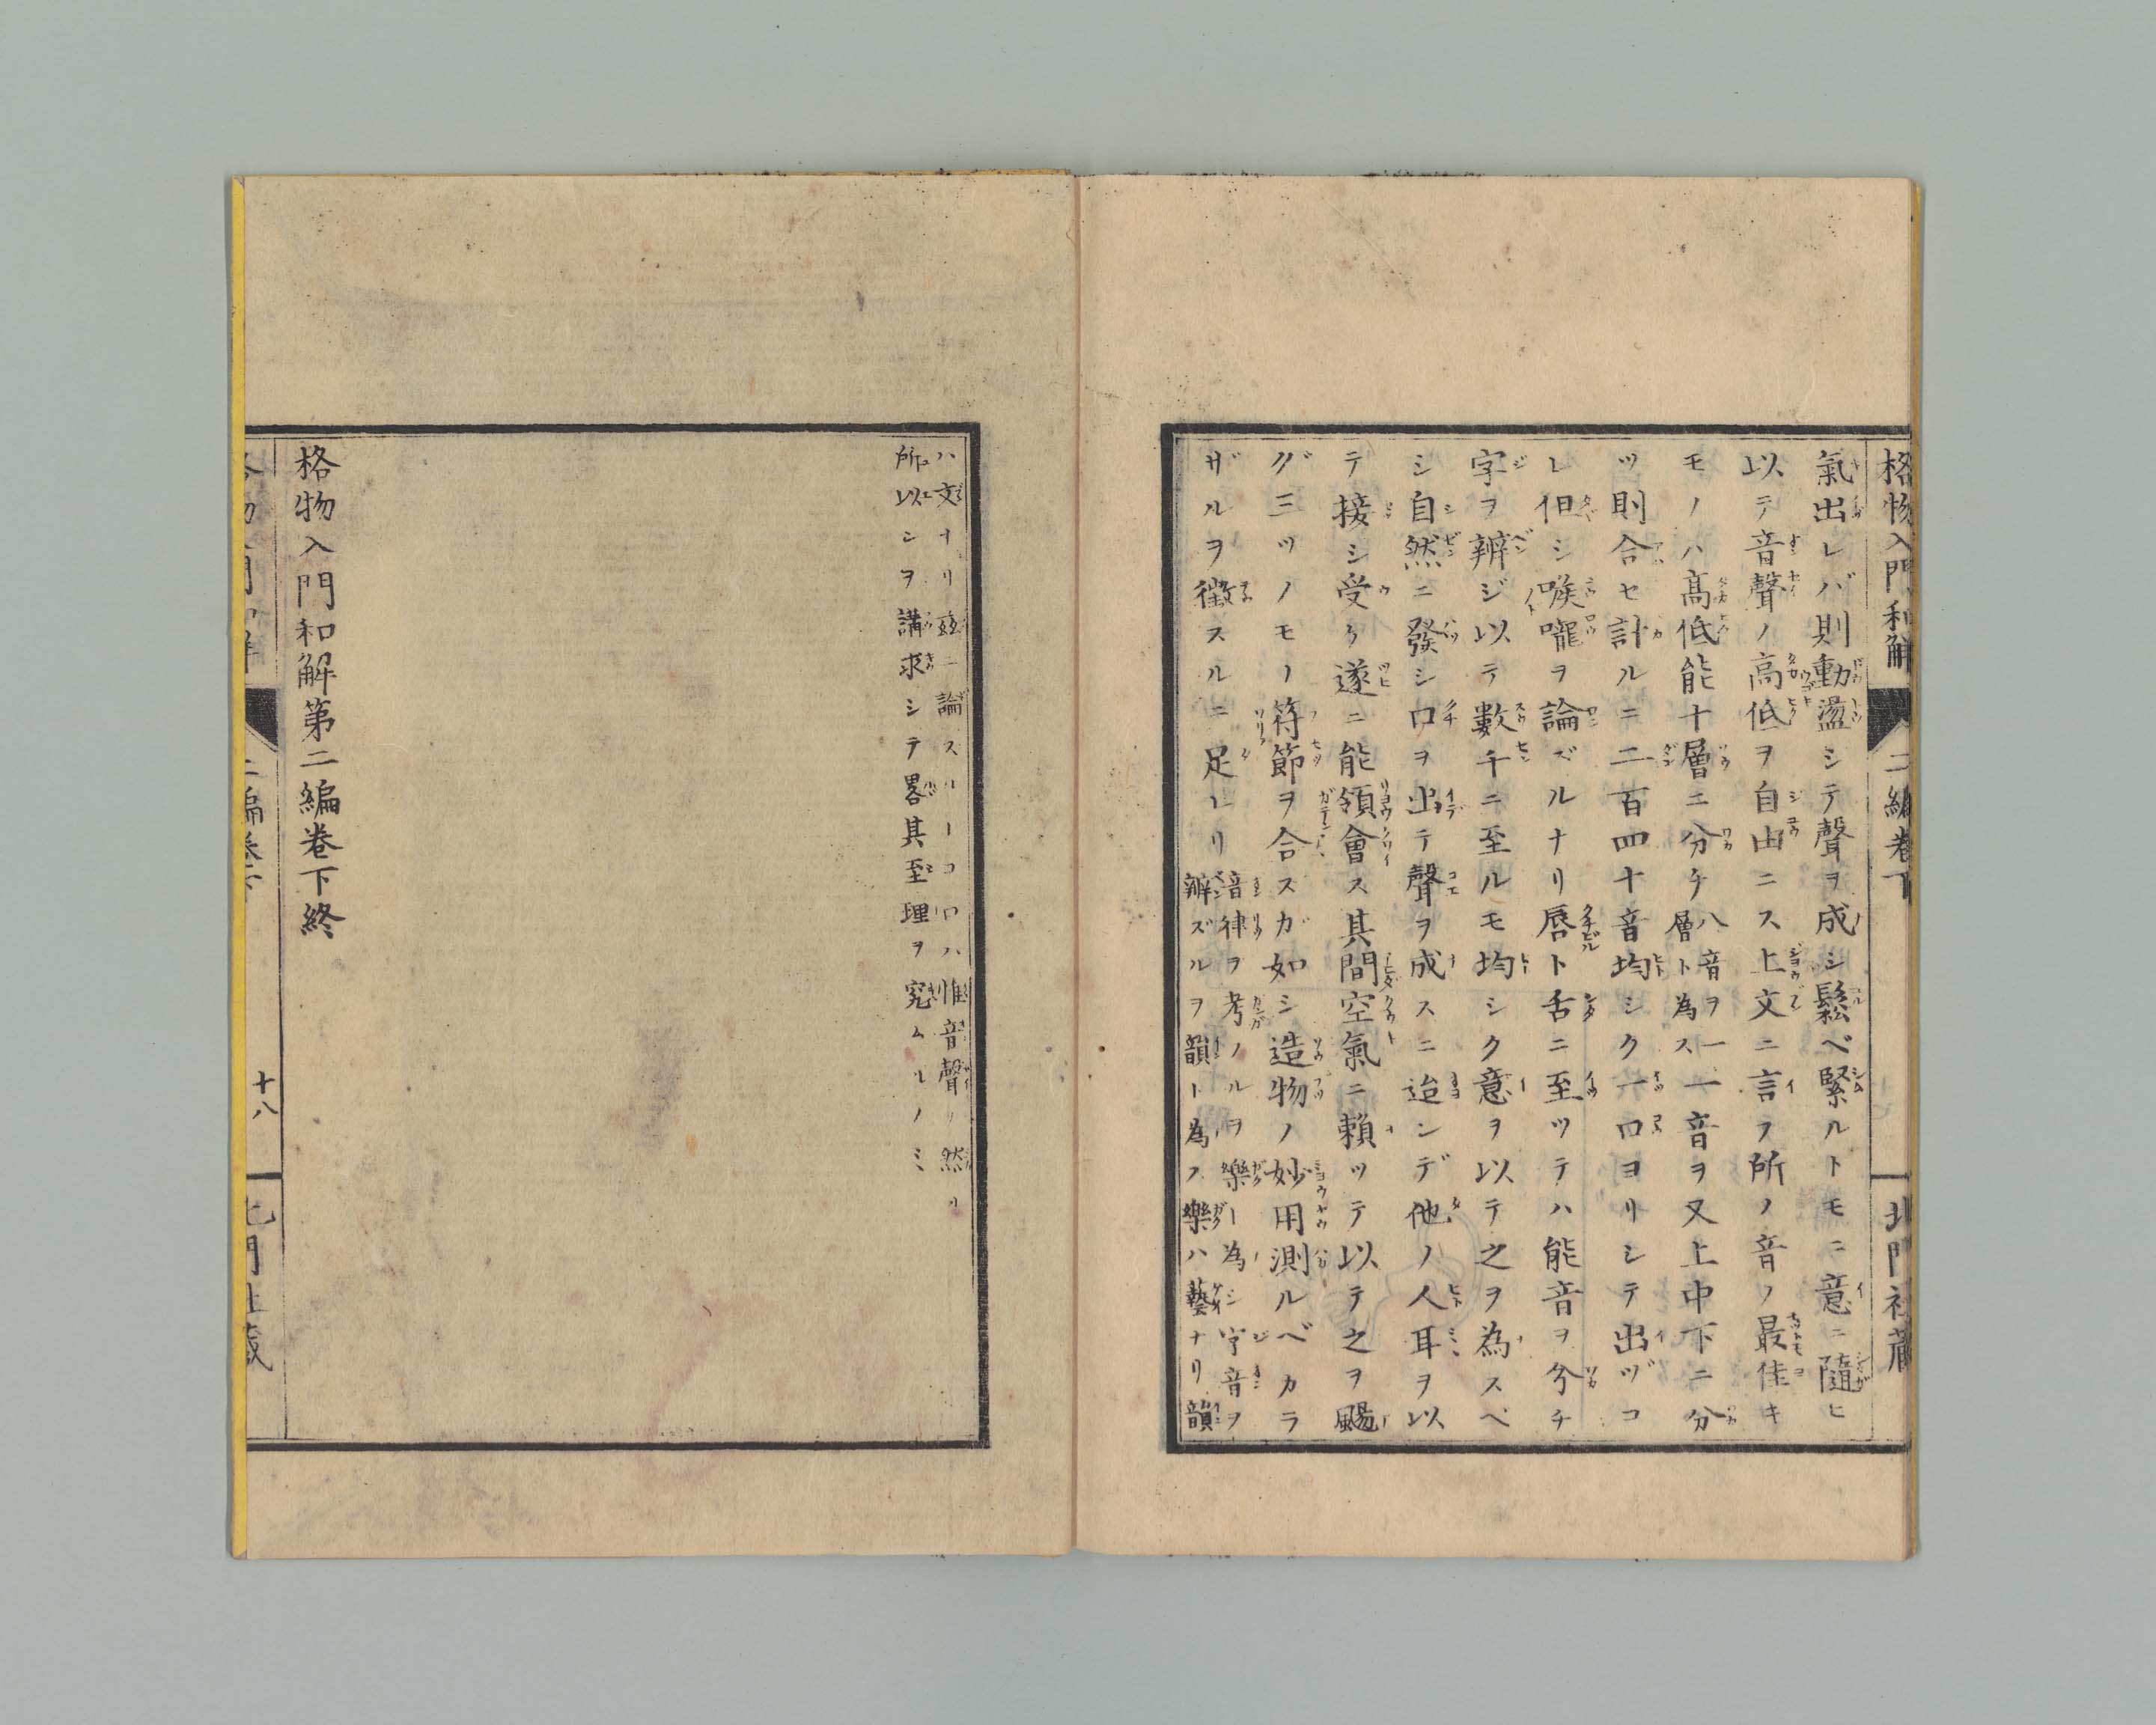 格物入門和解
二編卷下
北門社藏
氣出レバ則動盪シテ聲ヲ成シ鬆ベ緊ルトモニ意ニ隨ヒ
以テ音聲ノ高低ヲ自由ニス上文ニ言フ所ノ音ノ最佳キ
モノハ高低能十層ニ分チ八音ヲ一層ト為ス一音ヲ又上中下ニ分
ツ則合セ計ルニ二百四十音均シク一口ヨリシテ出ヅコ
レ但シ喉嚨ヲ論ズルナリ唇ト舌ニ至ツテハ能音ヲ分チ
字ヲ辨ジ以テ數千ニ至ルモ均シク意ヲ以テ之ヲ為スベ
シ自然ニ發シ口ヲ出テ聲ヲ成スニ迨ンデ他ノ人耳ヲ以
テ接シ受ケ遂ニ能領會ス其間空氣ニ賴ツテ以テ之ヲ颺
グ三ツノモノ符節ヲ合スガ如シ造物ノ妙用測ルベカラ
ザルヲ徵スルニ足レリ
音律ヲ考ノルヲ樂ト為シ字音ヲ
辨ズルヲ韻ト為ス樂ハ藝ナリ韻
ハ文ナリ茲ニ論スルトコロハ惟音聲ノ然ル
所以シヲ講求シテ畧其至理ヲ究ムルノミ
格物入門和解第二編卷下終
十八